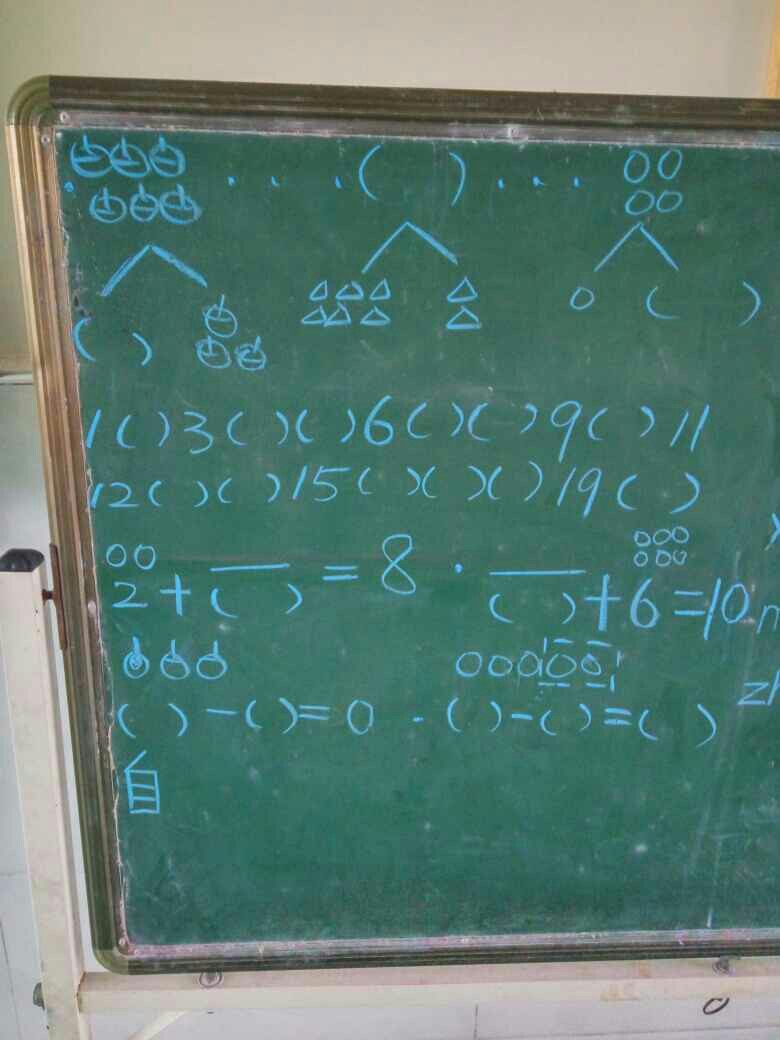 · · · ( ) · · ·
( ) ( )
1 ( ) 3 ( ) ( ) 6 ( ) ( ) 9 ( ) 11
12 ( ) ( ) 15 ( ) ( ) ( ) 19 ( )
2 + ( ) = 8 · ( ) + 6 = 10
( ) - ( ) = 0 · ( ) - ( ) = ( )